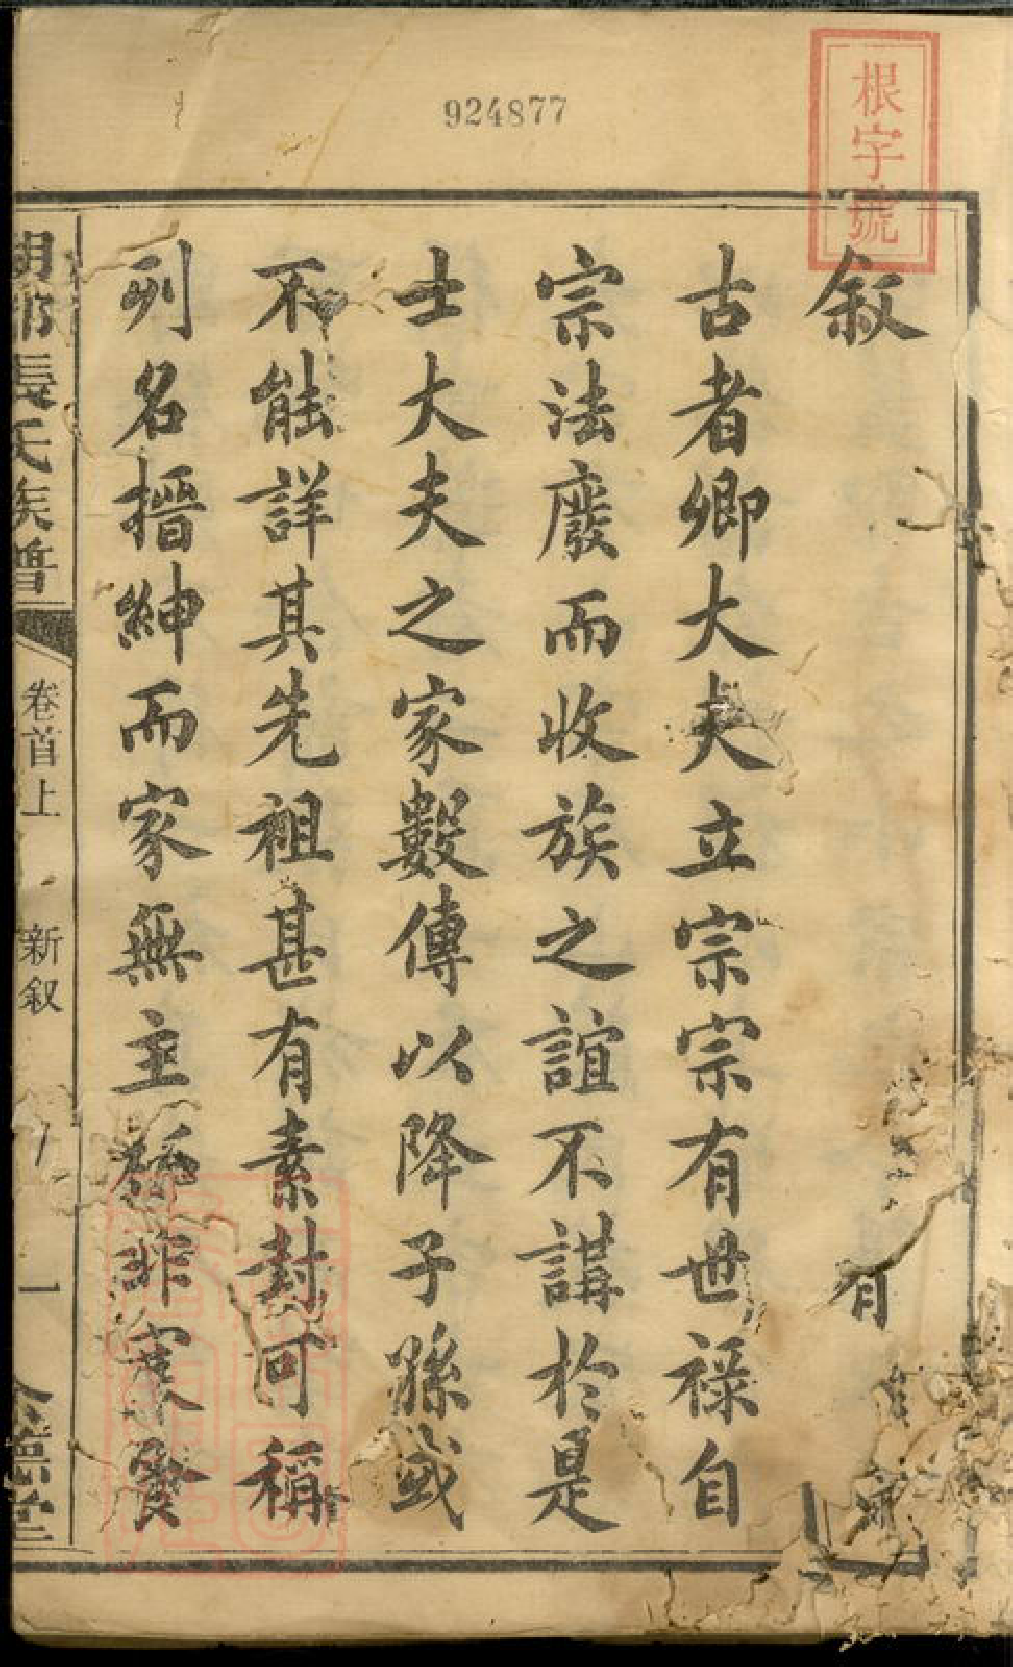 924877
根字號
叙
古者卿大夫立宗宗有世祿自
宗法廢而收族之誼不講於是
士大夫之家數傳以降子孫或
不能詳其先祖甚有素封可稱
列名搢紳而家無主祏非寔發
氏族譜
卷首上
新叙
一